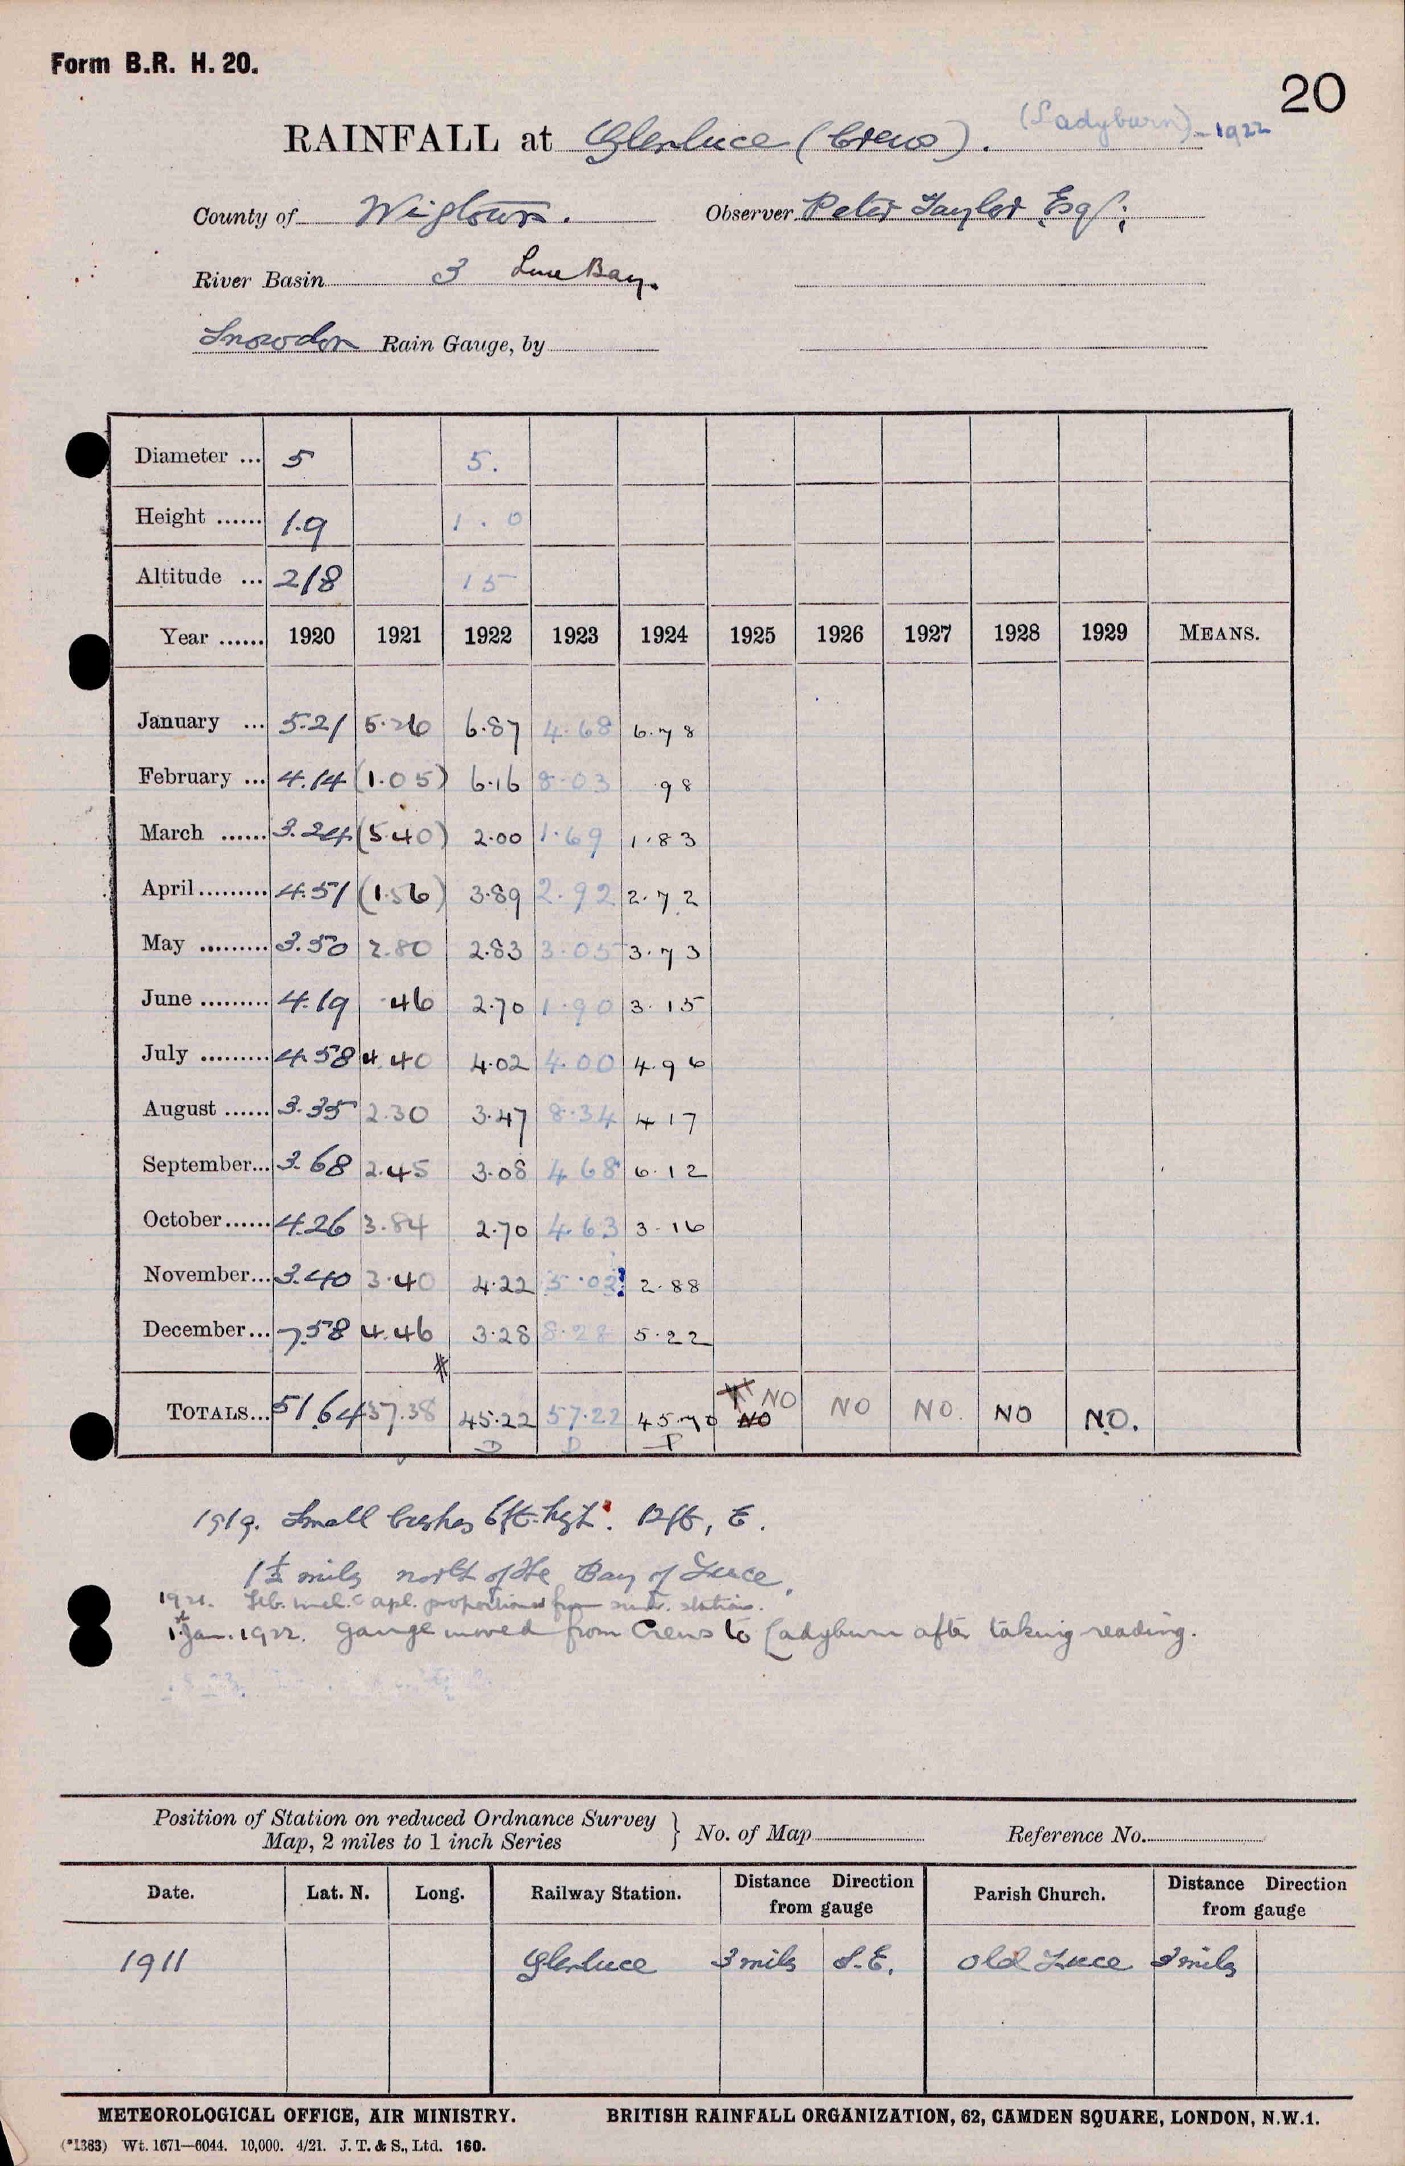 Form B.R. H. 20.
20
RAINFALL at Glenluce (Crews). (Ladyburn) - 1922
County of Wigtown. Observer Peter Taylor Esq;
River Basin 3 Luce Bay.
Snowdon Rain Gauge, by
Diameter ... 5 5.
Height ...... 1.9 1.0
Altitude ... 218 15
Year ...... 1920 1921 1922 1923 1924 1925 1926 1927 1928 1929 MEANS.
January ... 5.21 5.26 6.87 4.68 6.78
February ... 4.14 (1.05) 6.16 8.03 .98
March ...... 3.24 (5.40) 2.00 1.69 1.83
April ......... 4.51 (1.56) 3.89 2.92 2.72
May ......... 3.50 2.80 2.83 3.05 3.73
June ......... 4.19 .46 2.70 1.90 3.15
July ......... 4.58 4.40 4.02 4.00 4.96
August ...... 3.35 2.30 3.47 8.34 4 17
September... 3.68 2.45 3.08 4.68 6.12
October...... 4.26 3.84 2.70 4.63 3.16
November... 3.40 3.40 4.22 5.02? 2.88
December... 7.58 4.46 3.28 8.28 5.22
TOTALS... 51.64 37.38 45.22 57.22 45.70 NO NO NO NO. NO NO.
D D P
1919. Small bushes 6ft. high. 12ft, E.
1½ miles north of the Bay of Luce.
1921. Feb. incl. apl. proportioned from surr. stations.
1st Jan. 1922. gauge moved from Crews to Ladyburn after taking reading.
Position of Station on reduced Ordnance Survey Map, 2 miles to 1 inch Series } No. of Map Reference No.
Date. Lat. N. Long. Railway Station. Distance Direction from gauge Parish Church. Distance Direction from gauge
1911 Glenluce 3 miles S.E. Old Luce 3 miles
METEOROLOGICAL OFFICE, AIR MINISTRY. BRITISH RAINFALL ORGANIZATION, 62, CAMDEN SQUARE, LONDON, N.W.1.
(*1383) Wt. 1671—6044. 10,000. 4/21. J. T. & S., Ltd. 160.